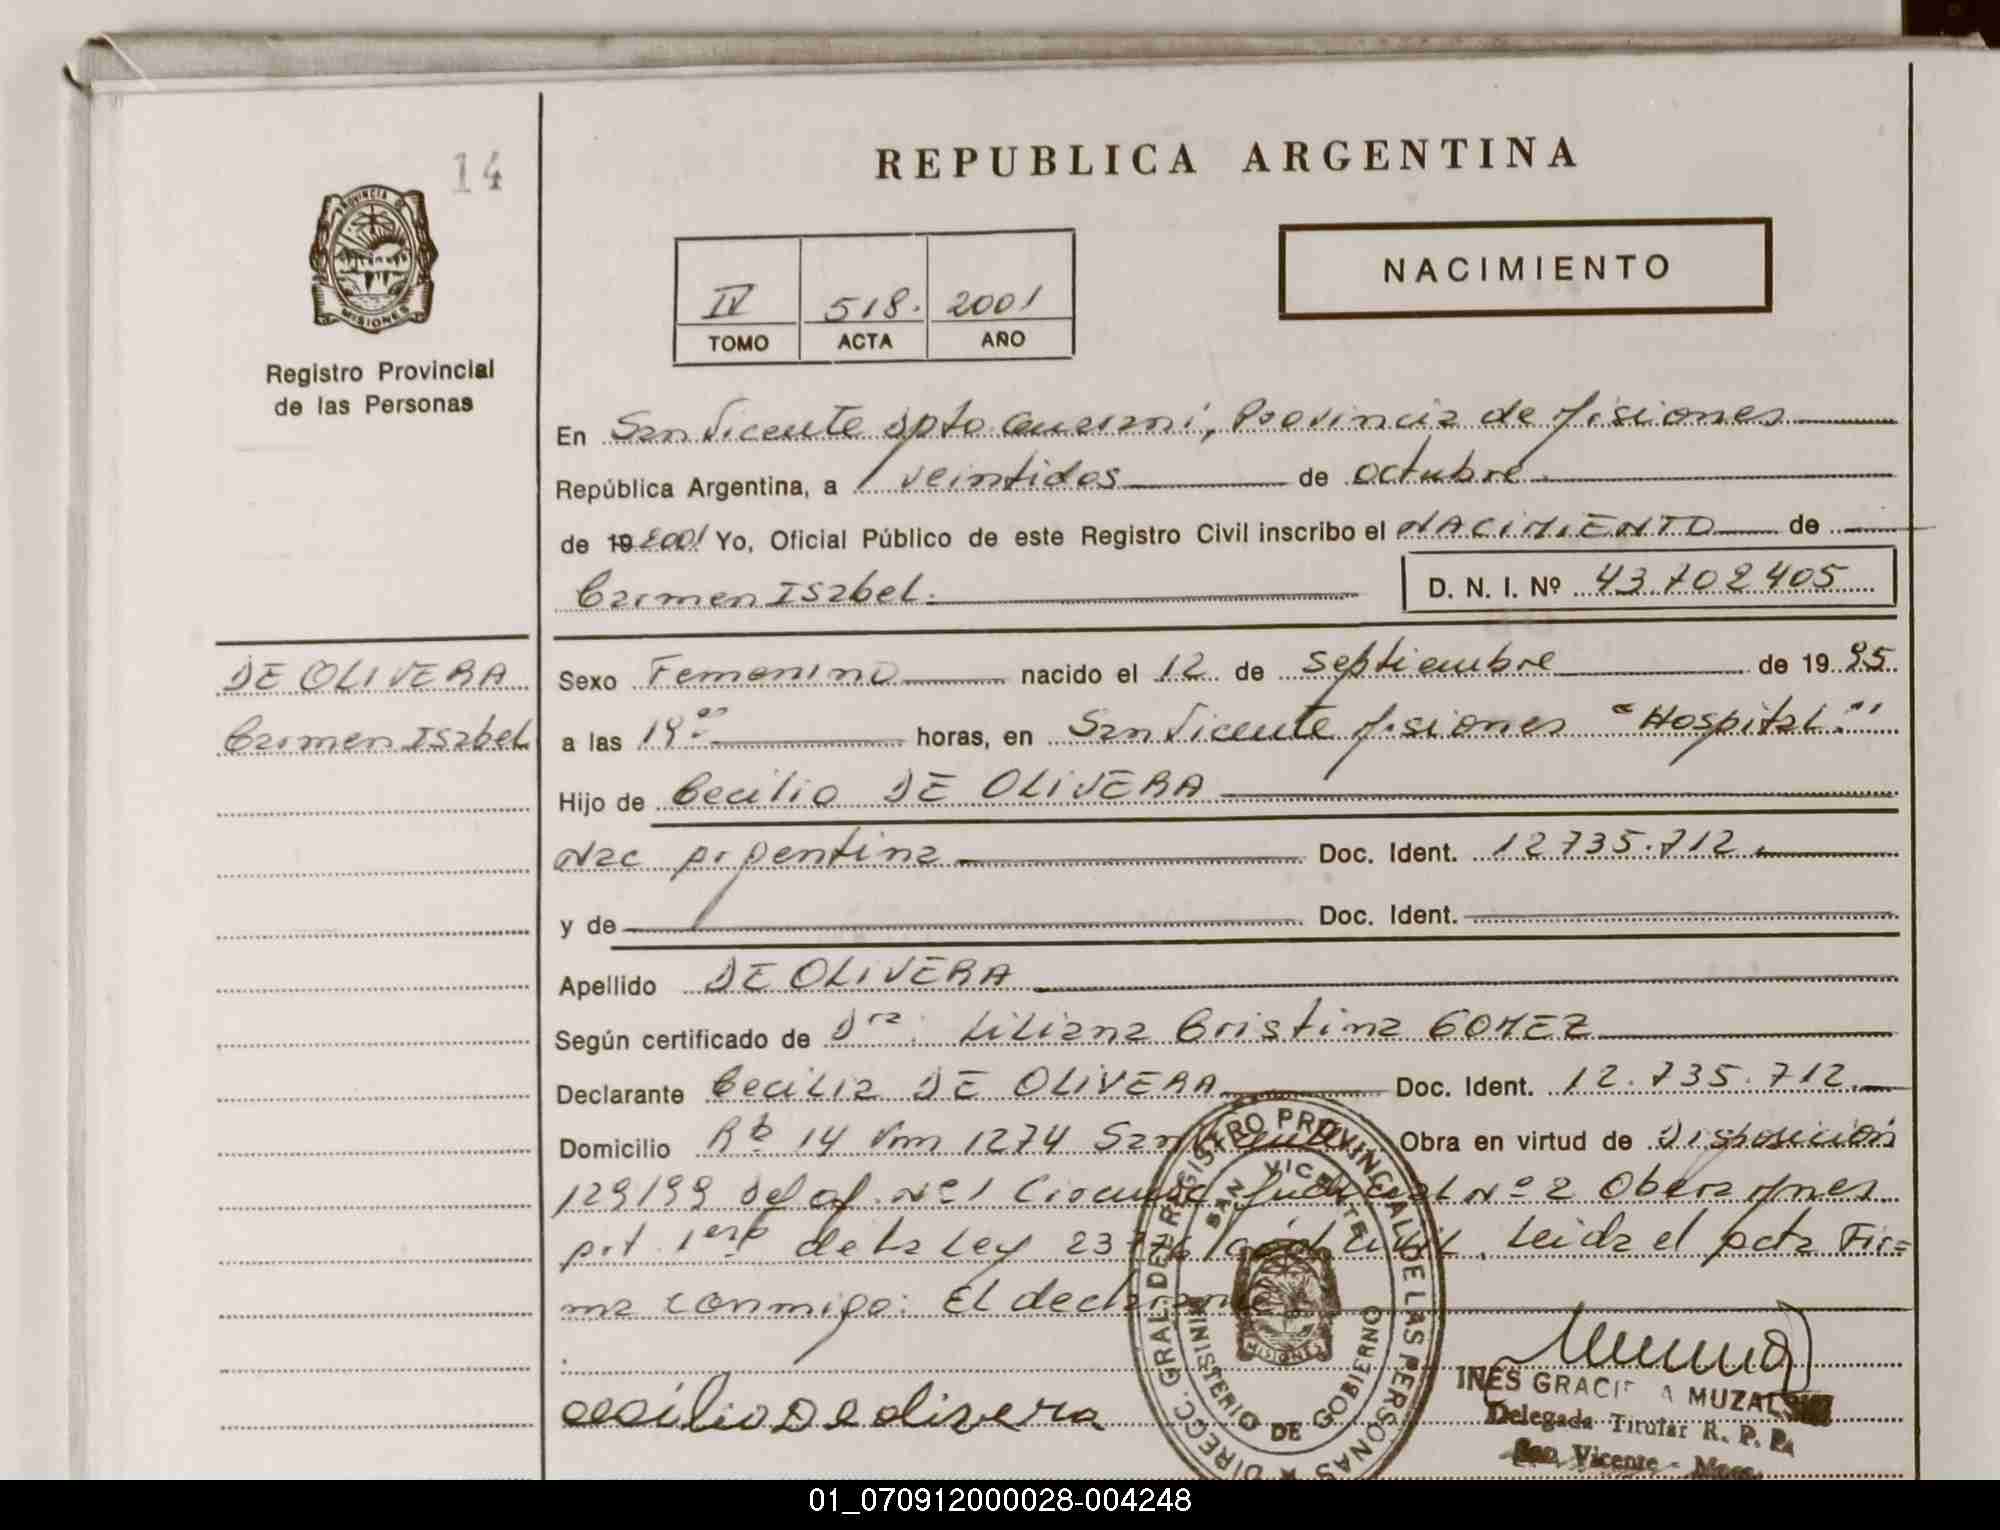 14
PROVINCIA DE
MISIONES
Registro Provincial
de las Personas
REPUBLICA ARGENTINA
IV 518. 2001
TOMO ACTA AÑO
NACIMIENTO
En San Vicente Dpto Guarani, Provincia de Misiones
República Argentina, a veintidos de octubre
de 19 2001 Yo, Oficial Público de este Registro Civil inscribo el NACIMIENTO de
Carmen Isabel. D. N. I. Nº 43.702405
DE OLIVERA
Carmen Isabel
Sexo Femenino nacido el 12 de Septiembre de 19 95
a las 19 horas, en San Vicente Misiones "Hospital."
Hijo de Cecilio DE OLIVERA
Nac Argentina Doc. Ident. 12735.712.
y de Doc. Ident.
Apellido DE OLIVERA
Según certificado de Dra: Liliana Cristina GOMEZ
Declarante Cecilia DE OLIVERA Doc. Ident. 12.735.712
Domicilio Rta 14 Km 1274 San Vicente Obra en virtud de Disposición
129/99 Del of. Nº 1 Circunc Judicial Nº 2 Obera Mnes
Art. 1 de la Ley Leida el acta Fir=
ma conmigo: El declarante
cecilio De olivera
DIRECC. GRAL. DEL REGISTRO PROVINCIAL DE LAS PERSONAS
SAN VICENTE
MINISTERIO DE GOBIERNO
MISIONES
INES GRACI A MUZAL
Delegada Titular R. P. P.
San Vicente - Mnes.
01_070912000028-004248